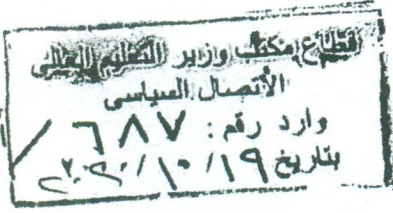 قطاع مكتب وزير التعليم العالى
الأتصال السياسى
وارد رقم : ٦٨٧ /
بتاريخ ١٩ / ١٠ / ٢٠٢٠